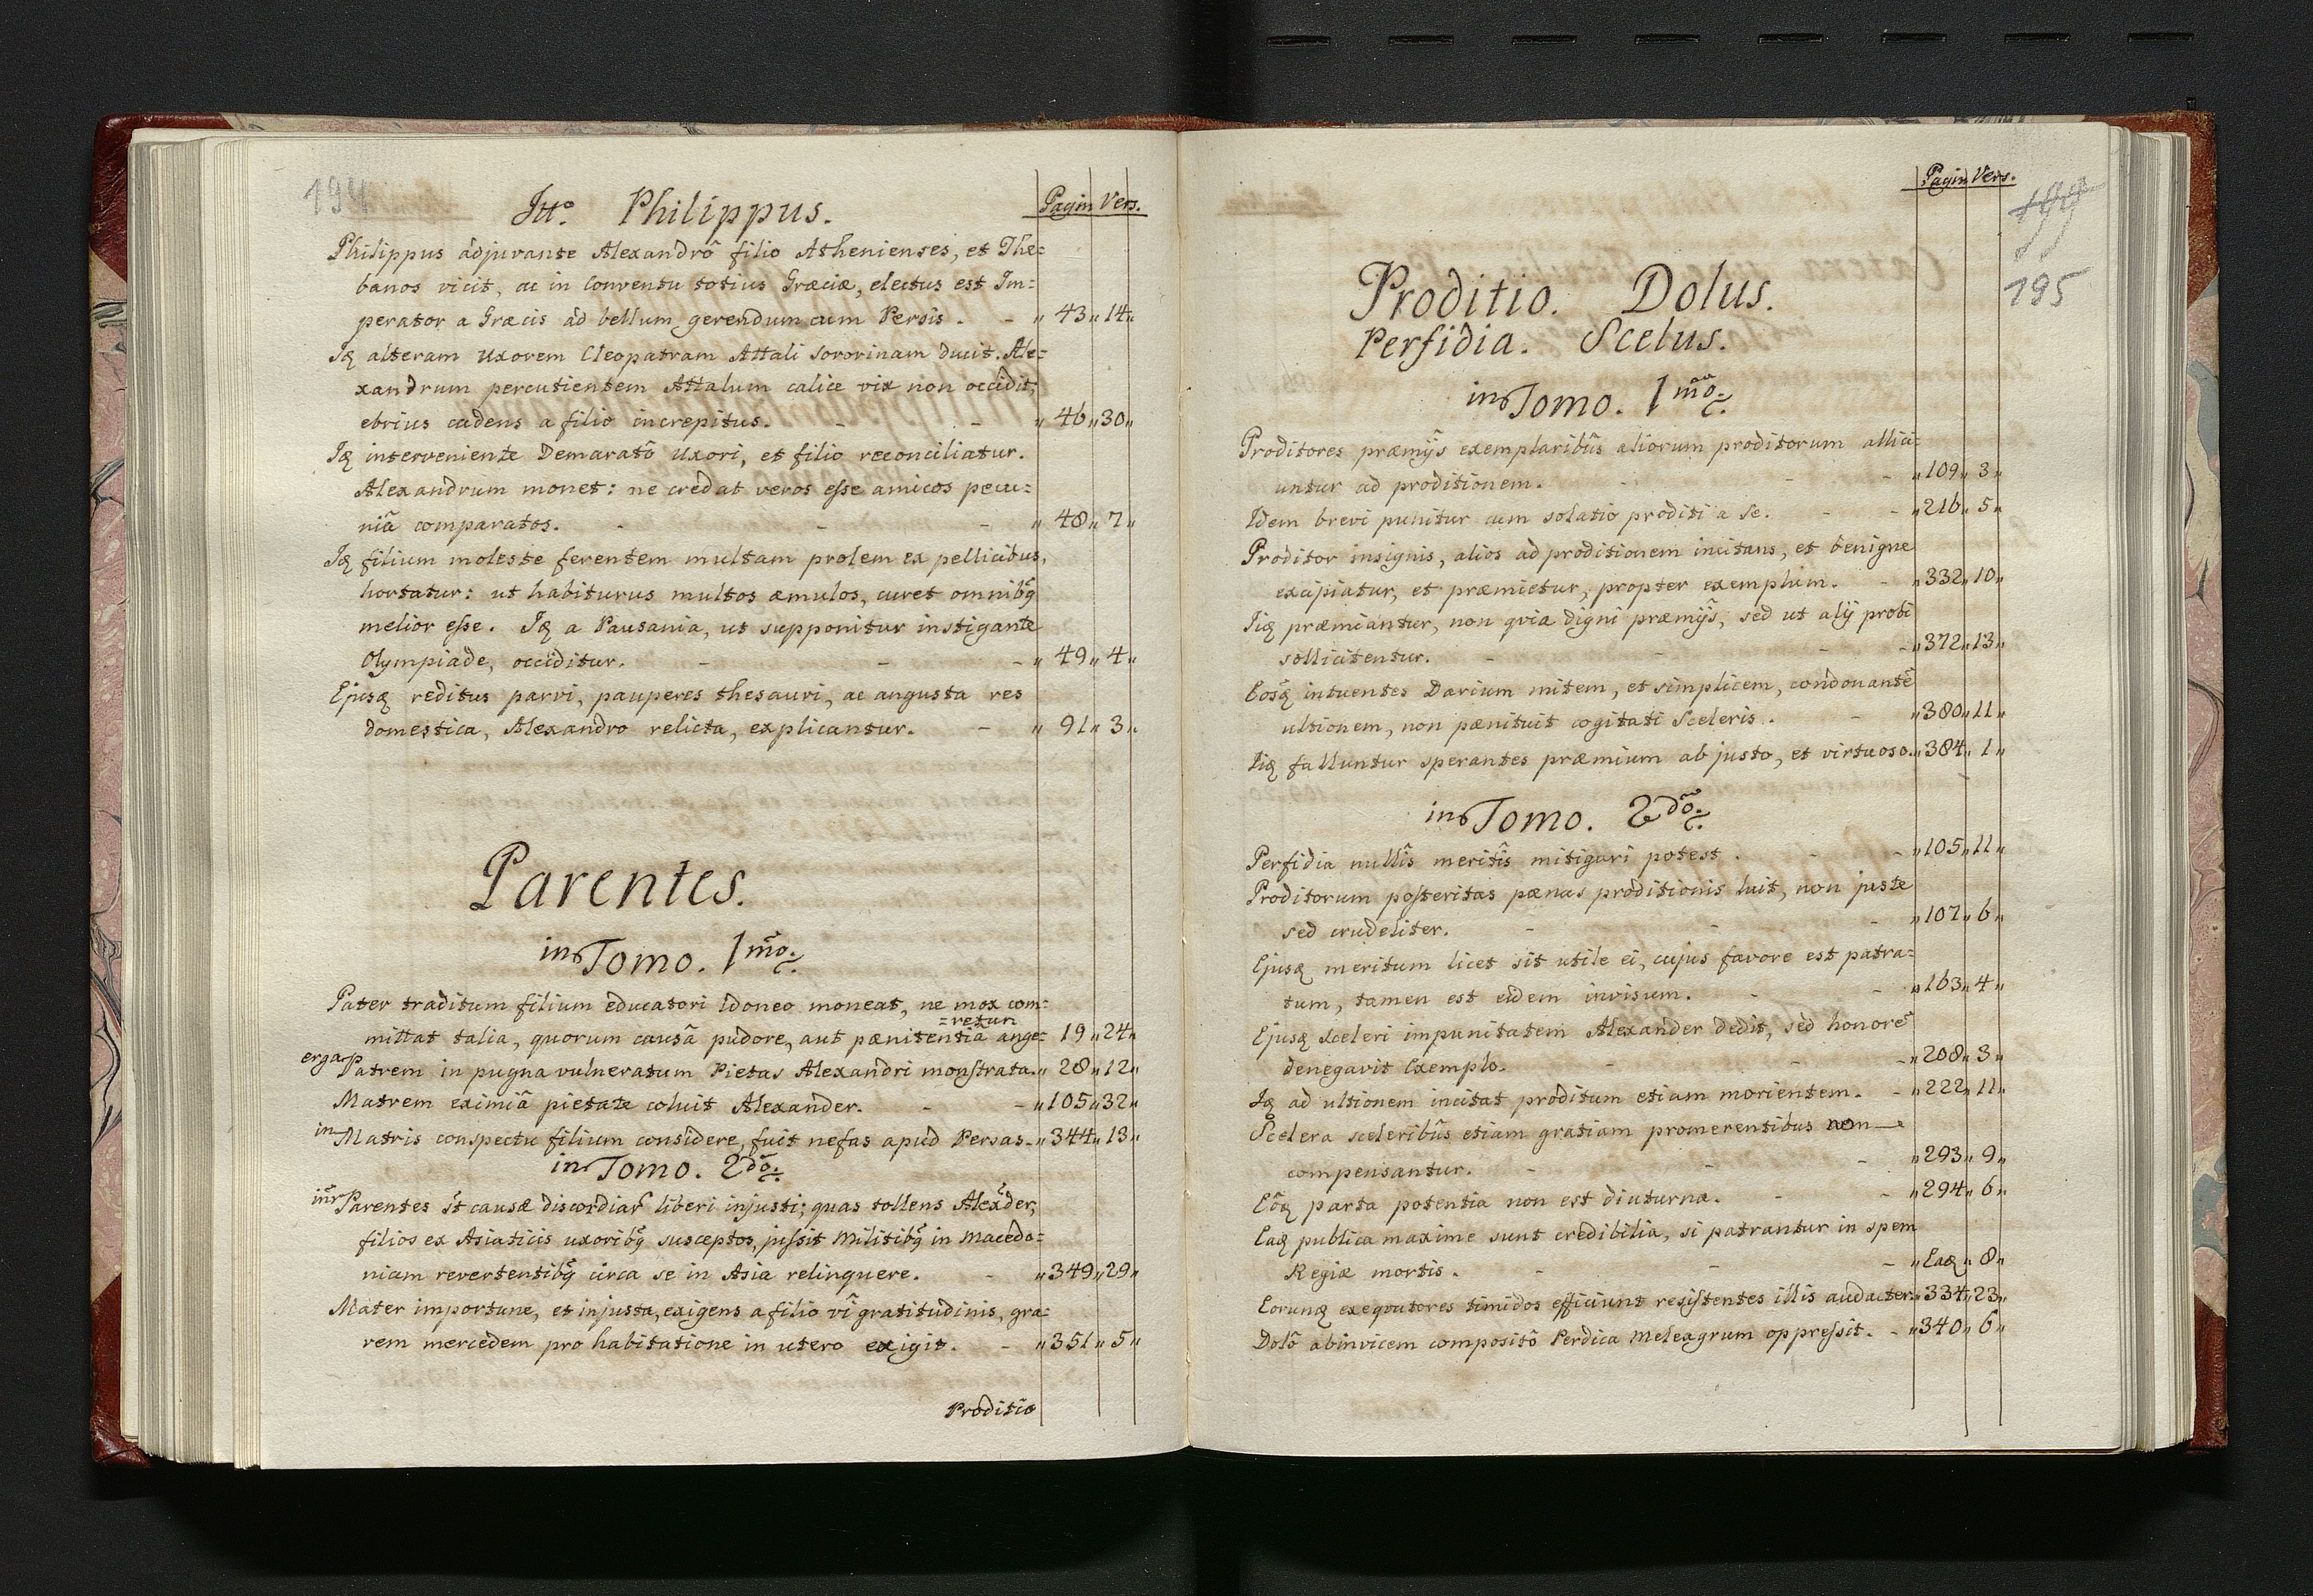 194
Itt⁰. Philippus. Pagin Vers.
Philippus adjuvante Alexandrô filio Athenienses, et The=
banos vicit, ac in Conventu totius Græciæ, electus est Im=
perator a Græcis ad bellum gerendum cum Persis. - „ 43 „ 14 „
Iꝗ alteram Uxorem Cleopatram Attali sororinam ducit. Ale=
xandrum percutientem Attalum calice vix non occidit,
ebrius cadens a filio increpitus. - - „ 46 „ 30 „
Iꝗ interveniente Demaratô Uxori, et filio reconciliatur.
Alexandrum monet: ne credat veros eſse amicos pecu=
niâ comparatos. - - - „ 48 „ 7 „
Iꝗ filium moleste ferentem multam prolem ex pellicibus,
hortatur: ut habiturus multos æmulos, curet omnibꝗ
melior eſse. Iꝗ a Pausania, ut supponitur instigante
Olympiade, occiditur. - - - „ 49 „ 4 „
Ejusꝗ reditus parvi, pauperes thesauri, ac angusta res
domestica, Alexandro relicta, explicantur. - „ 91 „ 3 „
Parentes.
in Tomo. 1mõ.
Pater traditum filium educatori idoneo moneat, ne mox com=
=retur
mittat talia, quorum causâ pudore, aut pænitentiâ ange= 19 „ 24 „
erga Patrem in pugna vulneratum Pietas Alexandri monſtrata. „ 28 „ 12 „
Matrem eximiâ pietate coluit Alexander. - - „ 105 „ 32 „
in Matris conspectu filium considere, fuit nefas apud Persas - „ 344 „ 13 „
in Tomo. 2dõ.
inr̃ Parentes st̃ causæ discordiar̃ liberi injusti; quas tollens Alex̃der,
filios ex Asiaticis uxoribꝗ susceptos, juſsit Militibꝗ in Macedo=
niam revertentibꝗ circa se in Asia relinquere. - „ 349 „ 29 „
Mater importune, et injusta, exigens a filio vî gratitudinis, gra=
vem mercedem pro habitatione in utero exigit. - „ 351 „ 5 „
Proditio
Pagin Vers.
199
195
Proditio. Dolus.
Perfidia. Scelus.
in Tomo. 1mõ.
Proditores præmijs exemplaribûs aliorum proditorum allici=
untur ad proditionem. - - - „ 109 „ 3 „
Idem brevi punitur cum solatio proditi a se. - - „ 216 „ 5 „
Proditor insignis, alios ad proditionem incitans, et benigne
excipiatur, et præmietur, propter exemplum. - „ 332 „ 10 „
Iiꝗ præmiantur, non qvia digni præmijs, sed ut alij probi
sollicitentur. - - - - „ 372 „ 13 „
Eosꝗ intuentes Darium mitem, et simplicem, condonantẽ
ultionem, non pænituit cogitati Sceleris. - „ 380 „ 11 „
Iiꝗ falluntur sperantes præmium ab justo, et virtuoso. „ 384 „ 1 „
in Tomo. 2dõ.
Perfidia nullîs meritîs mitigari potest. - - „ 105 „ 11 „
Proditorum poſteritas pænas proditionis luit, non juste
sed crudeliter. - - - „ 107 „ 6 „
Ejusꝗ meritum licet sit utile ei, cujus favore est patra=
tum, tamen est eidem invisum. - - „ 163 „ 4 „
Ejusꝗ sceleri impunitatem Alexander dedit, sed honorẽ
denegavit Exemplo. - - - „ 208 „ 3 „
Iꝗ ad ultionem incitat proditum etiam morientem. - „ 222 „ 11 „
Scelera sceleribûs etiam gratiam promerentibus non —
compensantur. - - - „ 293 „ 9 „
Eõꝗ parta potentia non est diuturna. - - „ 294 „ 6 „
Eaꝗ publica maxime sunt credibilia, si patrantur in spem
Regiæ mortis. - - - „ Eaꝗ „ 8 „
Eorunꝗ exeqvutores timidos efficiunt resiſtentes illis audacter „ 334 „ 23 „
Dolô abinvicem compositô Perdica Meleagrum oppreſsit. - „ 340 „ 6 „